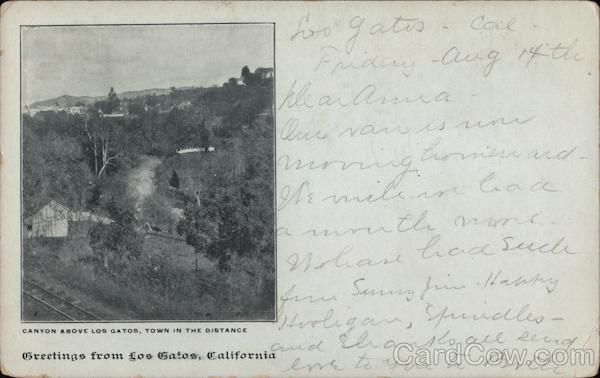 Los Gatos - Cal -
Friday - Aug 14th
Dear Anna -
Our van is now
moving homeward -
We wish we had
a month more -
We have had such
fun Sunny Jim - Happy
Hooligan, Spindles -
and all send
love to you
CANYON ABOVE LOS GATOS, TOWN IN THE DISTANCE
Greetings from Los Gatos, California
CardCow.com